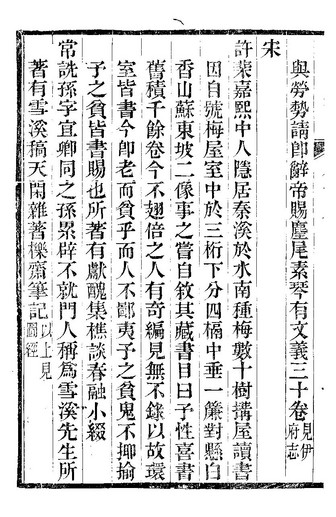 與勞勢請即辭帝賜麈尾素琴有文義三十卷見伊府志
宋
許棐嘉熙中人隱居秦溪於水南種梅數十樹搆屋讀書
因自號梅屋室中於三桁下分四槅中垂一簾對縣白
香山蘇東坡二像事之嘗自敘其藏書目曰予性喜書
舊積千餘卷今不翅倍之人有奇編見無不錄以故環
室皆書今卽老而貧乎而人不鄙夷予之貧鬼不揶揄
予之貧皆書賜也所著有獻醜集樵談春融小綴
常詵孫字宜卿同之孫累辟不就門人稱爲雪溪先生所
著有雪溪摛天閑雜著櫟齋筆記以上見圖經